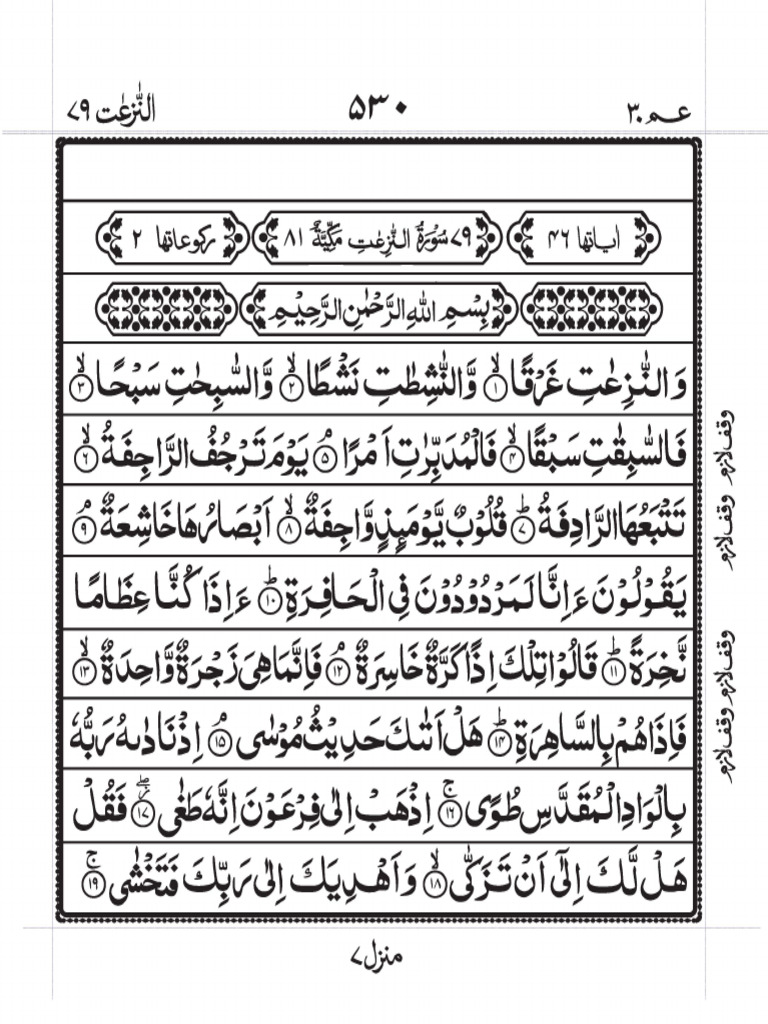 عـم ٣٠ ۵۳۰ النّٰزعٰت ٧٩
اٰیاتها ۴۶ ٧٩ سُوْرَةُ النّٰزِعٰتِ مَكِّيَّةٌ ٨١ ركوعاتها ٢
بِسْمِ اللّٰهِ الرَّحْمٰنِ الرَّحِيْمِ
وَالنّٰزِعٰتِ غَرْقًا ۙ﴿١﴾ وَّالنّٰشِطٰتِ نَشْطًا ۙ﴿٢﴾ وَّالسّٰبِحٰتِ سَبْحًا ۙ﴿٣﴾
فَالسّٰبِقٰتِ سَبْقًا ۙ﴿۴﴾ فَالْمُدَبِّرٰتِ اَمْرًا ۘ﴿۵﴾ يَوْمَ تَرْجُفُ الرَّاجِفَةُ ۙ﴿۶﴾
تَتْبَعُهَا الرَّادِفَةُ ؕ﴿٧﴾ قُلُوْبٌ يَّوْمَئِذٍ وَّاجِفَةٌ ۙ﴿٨﴾ اَبْصَارُهَا خَاشِعَةٌ ۘ﴿٩﴾
يَقُوْلُوْنَ ءَاِنَّا لَمَرْدُوْدُوْنَ فِي الْحَافِرَةِ ؕ﴿١٠﴾ ءَاِذَا كُنَّا عِظَامًا
نَّخِرَةً ؕ﴿١١﴾ قَالُوْا تِلْكَ اِذًا كَرَّةٌ خَاسِرَةٌ ۘ﴿١٢﴾ فَاِنَّمَا هِيَ زَجْرَةٌ وَّاحِدَةٌ ۙ﴿١٣﴾
فَاِذَا هُمْ بِالسَّاهِرَةِ ؕ﴿١۴﴾ هَلْ اَتٰىكَ حَدِيْثُ مُوْسٰى ۘ﴿١۵﴾ اِذْ نَادٰىهُ رَبُّهٗ
بِالْوَادِ الْمُقَدَّسِ طُوًى ۚ﴿١۶﴾ اِذْهَبْ اِلٰى فِرْعَوْنَ اِنَّهٗ طَغٰى ۖ﴿١٧﴾ فَقُلْ
هَلْ لَّكَ اِلٰٓى اَنْ تَزَكّٰى ۙ﴿١٨﴾ وَاَهْدِيَكَ اِلٰى رَبِّكَ فَتَخْشٰى ۚ﴿١٩﴾
وقف لازم
وقف لازم
وقف لازم
وقف لازم
منزل ٧